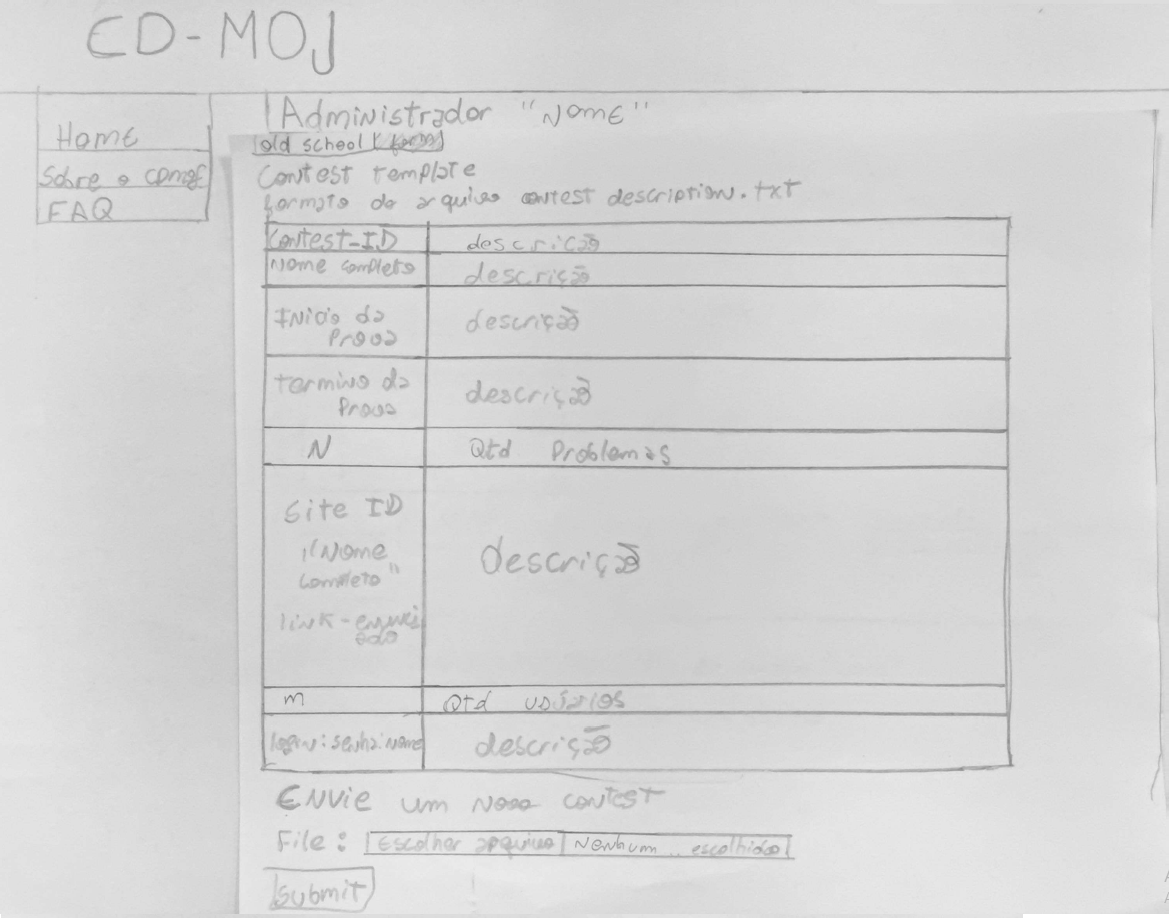 CD-MOJ
Home
Sobre o cdmoj
FAQ
Administrador "Nome"
old school
Contest template
formato do arquivo contest description.txt
Contest-ID descrição
Nome completo descrição
Início da
Prova
descrição
termino da
Prova
descrição
N Qtd Problemas
Site ID
"Nome
completo"
descrição
m Qtd usuários
login:senha:nome descrição
Envie um novo contest
File: Escolher arquivo Nenhum .. escolhido
Submit